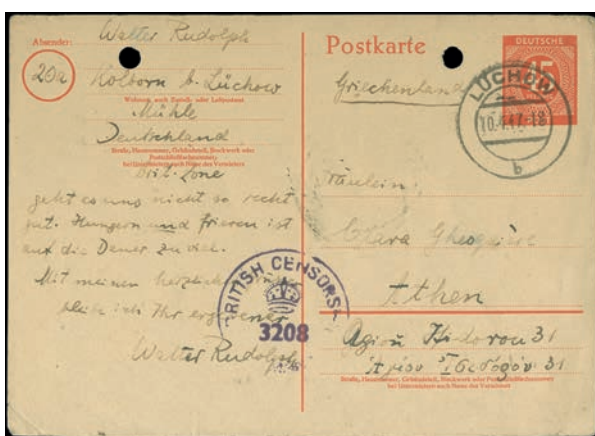 Absender:
Walter Rudolph
20a
Kolborn b. Lüchow
Wohnort, auch Zustell- oder Leitpostamt
Mühle
Deutschland
Straße, Hausnummer, Gebäudeteil, Stockwerk oder
Postschließfachnummer;
bei Untermietern auch Name des Vermieters
Brit. Zone
geht es uns nicht so recht
gut. Hungern und frieren ist
auf die Dauer zu viel.
Mit meinen herzlichen
bleibe ich Ihr ergebener
Walter Rudolph
BRITISH CENSORSH
3208
Postkarte
DEUTSCHE
15
Griechenland
LÜCHOW
10.4.47.-18
b
Fräulein
Clara
Athen
Agiou Isidorou 31
Αγίου Ἰσιδώρου 31
Straße, Hausnummer, Gebäudeteil, Stockwerk oder Postschließfachnummer;
bei Untermietern auch Name des Vermieters